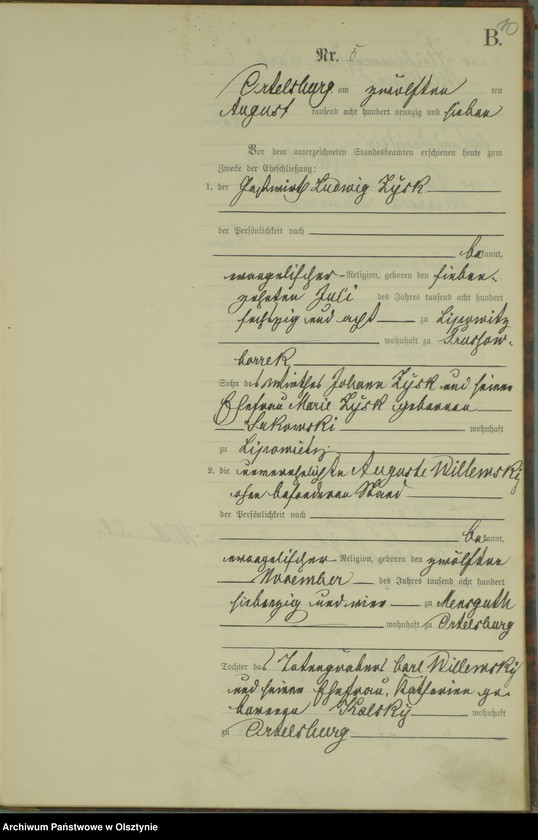 B. 10
Nr. 5
Ortelsburg am zwölften ten
August tausend acht hundert neunzig und sieben
Vor dem unterzeichneten Standesbeamten erschienen heute zum
Zwecke der Eheschließung:
1. der Gastwirt Ludwig Zysk
der Persönlichkeit nach
be kannt,
evangelischer Religion, geboren den sieben-
zehnten Juli des Jahres tausend acht hundert
sechzig und acht zu Lipowitz
wohnhaft zu
borrek
Sohn des Wirthes Johann Zysk und seiner
Ehefrau Marie Zysk geborenen
Sukowski wohnhaft
zu Lipowitz.
2. die unverehelichte Auguste Willewsky
ohne besonderen Stand
der Persönlichkeit nach
be kannt,
evangelischer Religion, geboren den zwölften
November des Jahres tausend acht hundert
siebenzig und vier zu Mensguth
wohnhaft zu Ortelsburg
Tochter des Totengräbers Carl Willewsky
und seiner Ehefrau, Katharine ge-
borenen Kalsky wohnhaft
zu Ortelsburg
Archiwum Państwowe w Olsztynie